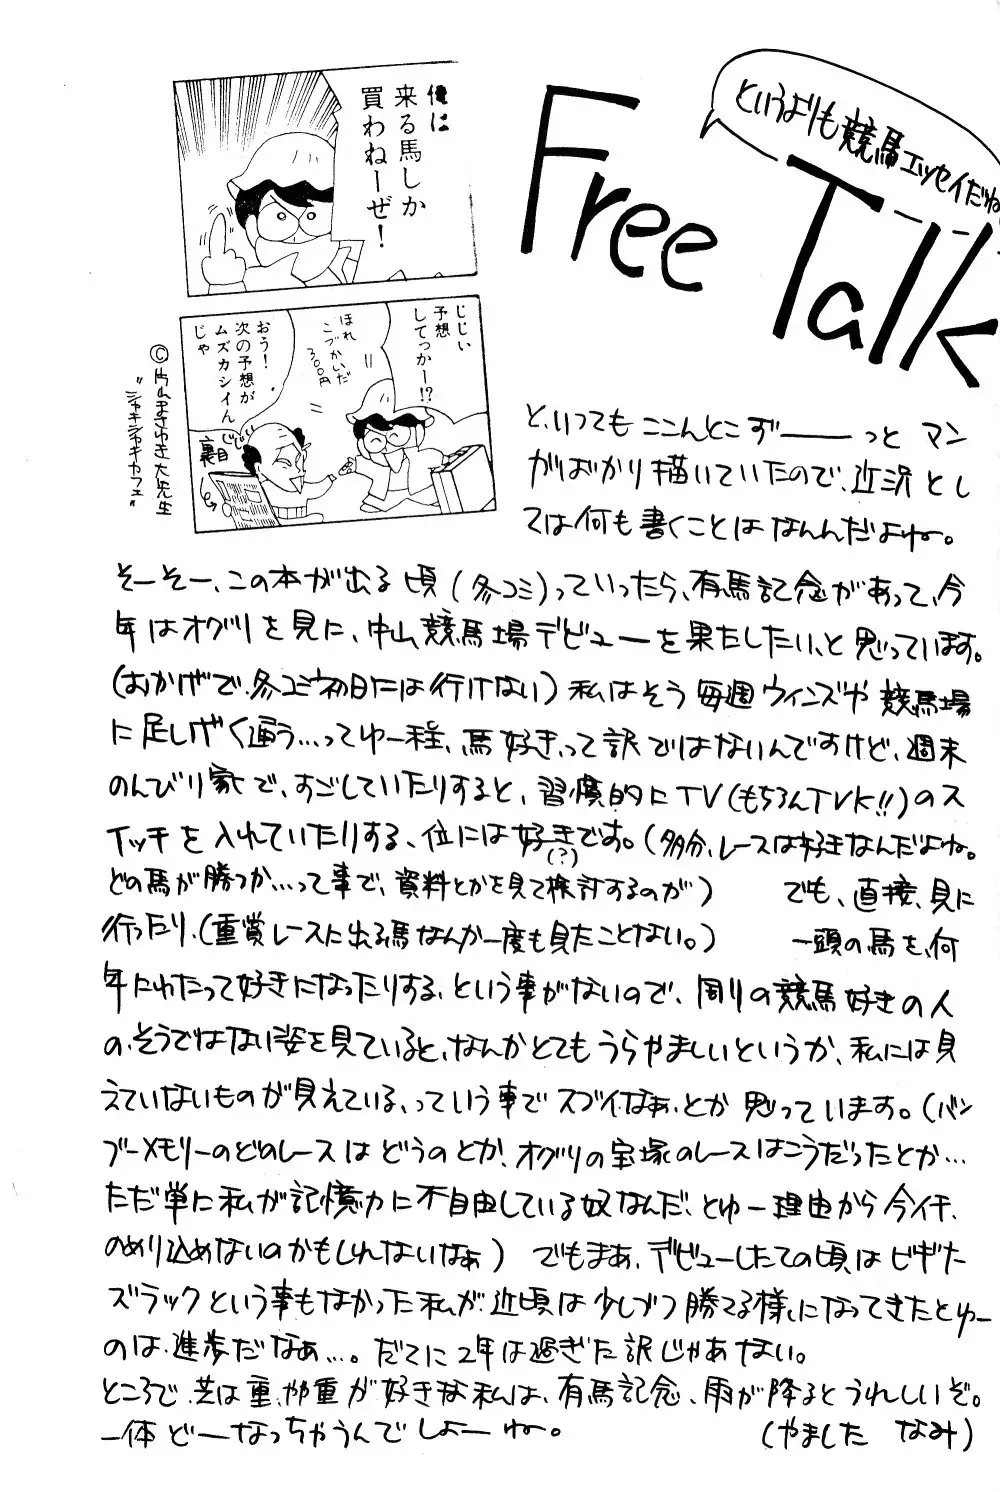 俺は
来る馬しか
買わねーぜ!
じじい
予想
してっかー!?
ほれ
こづかいだ
300円
おう!
次の予想が
ムズカシイん
じゃ
裏目
©片山まさゆき大先生
"シャキシャキカフェ"
というよりも競馬エッセイだね
Free Talk
と、いってもここんとこずーーっとマン
がばかり描いていたので、近況とし
ては何も書くことはなんんだよね。
そーそー、この本が出る頃(冬コミ)っていったら、有馬記念があって、今
年はオグリを見に、中山競馬場デビューを果たしたい、と思っています。
(おかげで、冬コミ初日には行けない)私はそう毎週ウィンズや競馬場
に足しげく通う…ってゆー程、馬好き、って訳ではないんですけど、週末
のんびり家で、すごしていたりすると、習慣的にTV(もちろんTVK!!)のス
イッチを入れていたりする、位には好きです。(多分、レースは好きなんだよね。
(?)
どの馬が勝つか…って事で、資料とかを見て検討するのが) でも、直接、見に
行ったり、(重賞レースに出る馬なんか一度も見たことない。) 一頭の馬を、何
年にわたって好きになったりする、という事がないので、周りの競馬好きの人
の、そうではない姿を見ていると、なんかとてもうらやましいというか、私には見
えていないものが見えている、っていう事でスゴイなぁ、とか思っています。(バン
ブーメモリーのどのレースはどうのとか、オグリの宝塚のレースはこうだったとか…
ただ単に私が記憶力に不自由している奴なんだ、とゆー理由から今イチ、
のめり込めないのかもしれないなぁ) でもまぁ、デビューしたての頃はビギナー
ズラックという事もなかった私が、近頃は少しづつ勝てる様になってきたとゆー
のは、進歩だなぁ…。だてに2年は過ぎた訳じゃあない。
ところで、芝は重、やや重が好きな私は、有馬記念、雨が降るとうれしいぞ。
一体どーなっちゃうんでしょーね。 (やました なみ)